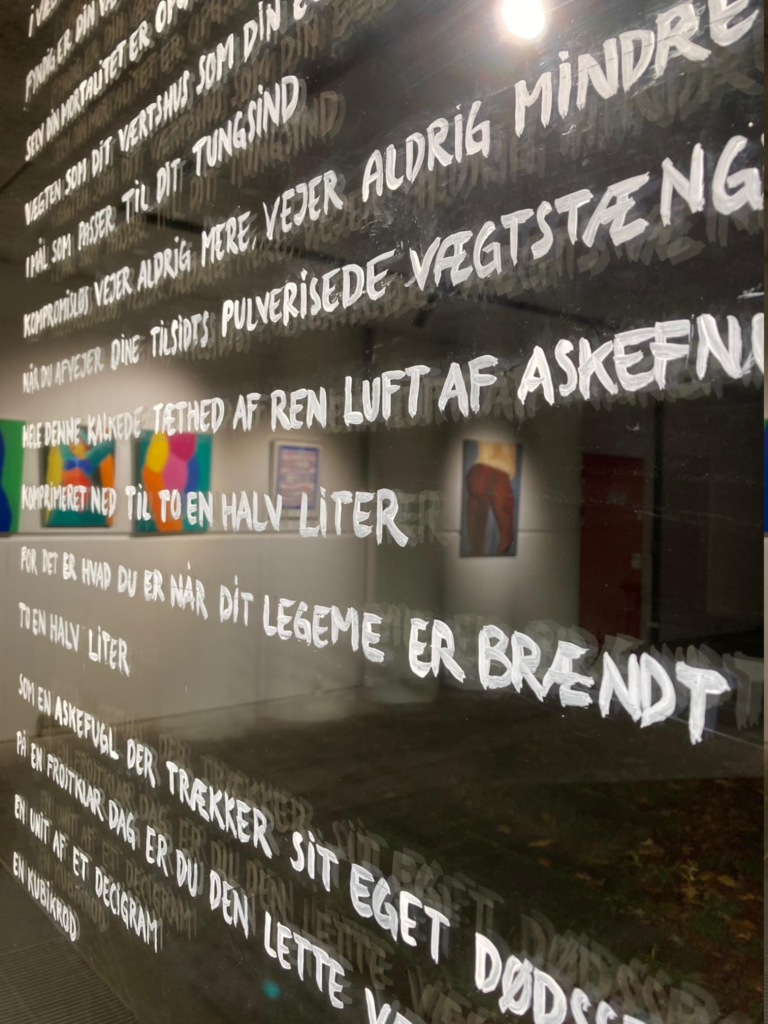 FYNDIG ER DIN
SELV DIN MORTALITET ER
VÆGTEN SOM DIT VÆRTSHUS SOM DIN
I MÅL SOM PASSER TIL DIT TUNGSIND
KOMPROMISLØS VEJER ALDRIG MERE, VEJER ALDRIG MINDRE
NÅR DU AFVEJER DINE TILSIDTS PULVERISEDE VÆGTSTÆNG
HELE DENNE KALKEDE TÆTHED AF REN LUFT AF ASKEFN
KOMPRIMERET NED TIL TO EN HALV LITER
FOR DET ER HVAD DU ER NÅR DIT LEGEME ER BRÆNDT
TO EN HALV LITER
SOM EN ASKEFUGL DER TRÆKKER SIT EGET DØDSSE
PÅ EN FROSTKLAR DAG ER DU DEN LETTE
EN UNIT AF ET DECIGRAM
EN KUBIKROD